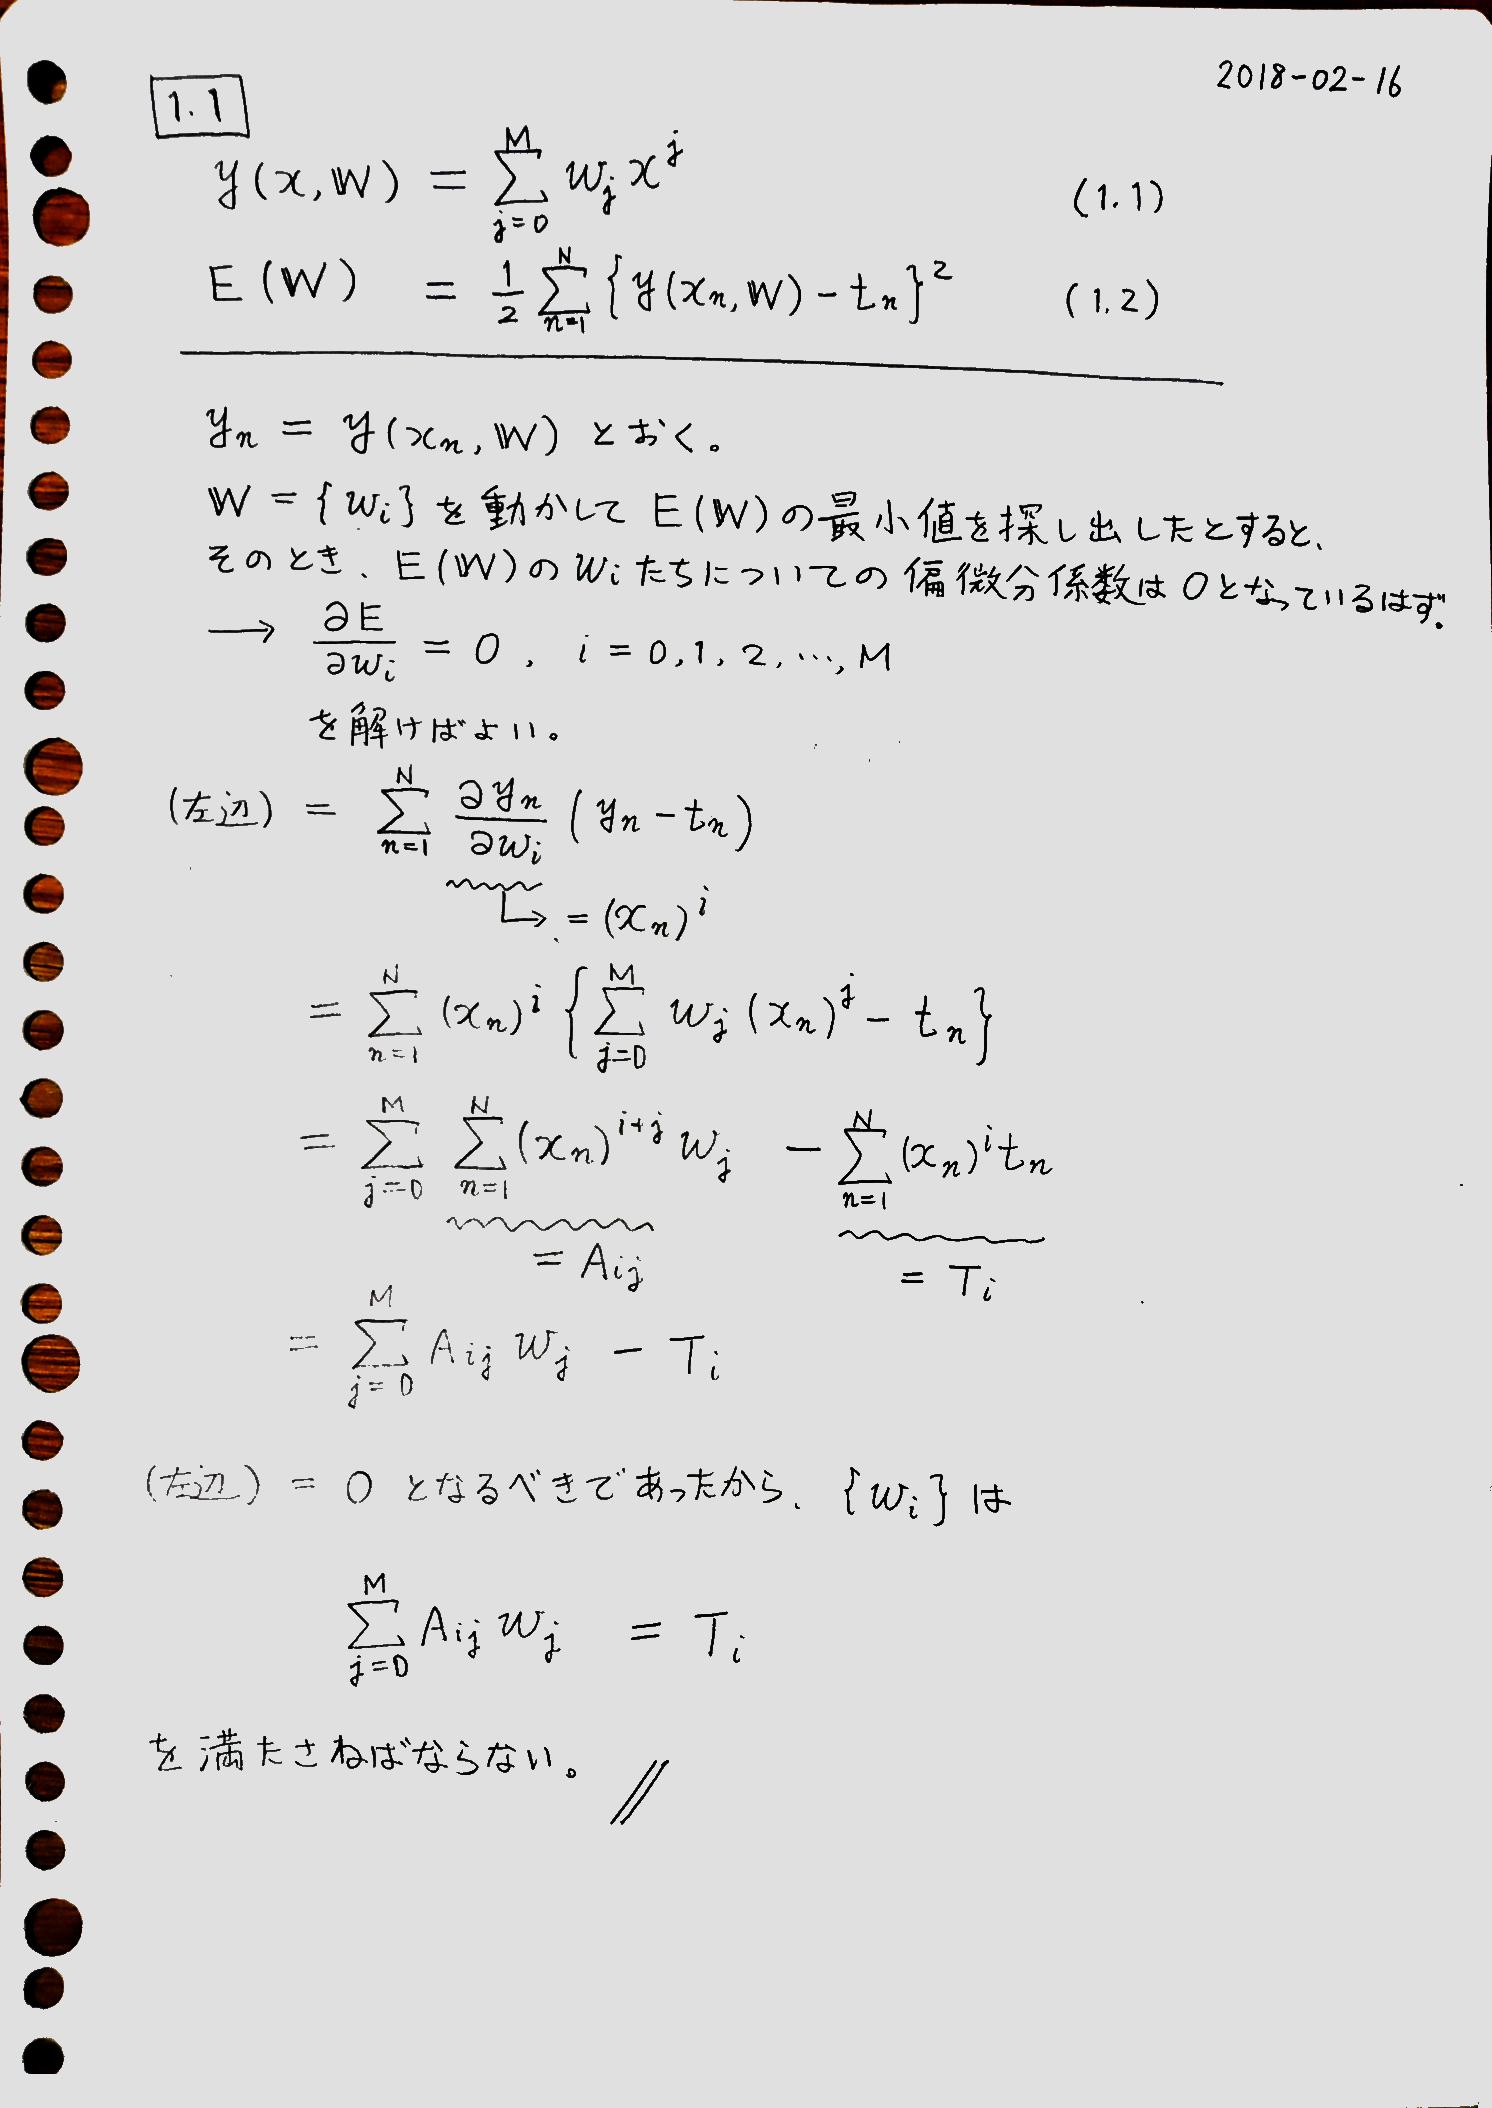 2018-02-16
1.1
y(x, W) = Σ_{j=0}^{M} w_j x^j (1.1)
E(W) = 1/2 Σ_{n=1}^{N} {y(x_n, W) - t_n}^2 (1.2)
y_n = y(x_n, W) とおく。
W = {w_i} を動かして E(W) の最小値を探し出したとすると、
そのとき、E(W) の w_i たちについての偏微分係数は 0 となっているはず.
→ ∂E/∂w_i = 0, i = 0, 1, 2, …, M
を解けばよい。
(左辺) = Σ_{n=1}^{N} ∂y_n/∂w_i (y_n - t_n)
↳ = (x_n)^i
= Σ_{n=1}^{N} (x_n)^i {Σ_{j=0}^{M} w_j (x_n)^j - t_n}
= Σ_{j=0}^{M} Σ_{n=1}^{N} (x_n)^{i+j} w_j - Σ_{n=1}^{N} (x_n)^i t_n
= A_{ij} = T_i
= Σ_{j=0}^{M} A_{ij} w_j - T_i
(左辺) = 0 となるべきであったから、{w_i} は
Σ_{j=0}^{M} A_{ij} w_j = T_i
を満たさねばならない。 //